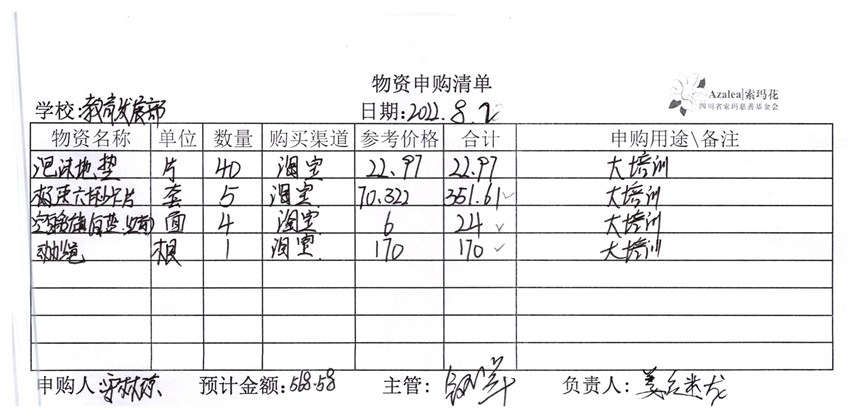 物资申购清单
Azalea|索玛花
四川省索玛慈善基金会
学校:教育发展部 日期:2022.8.2
物资名称 单位 数量 购买渠道 参考价格 合计 申购用途\备注
泡沫地垫 片 40 淘宝 22.97 22.97 大培训
套 5 淘宝 70.322 351.61 大培训
面 4 淘宝 6 24 大培训
根 1 淘宝 170 170 大培训
申购人: 预计金额:568.58 主管: 负责人: